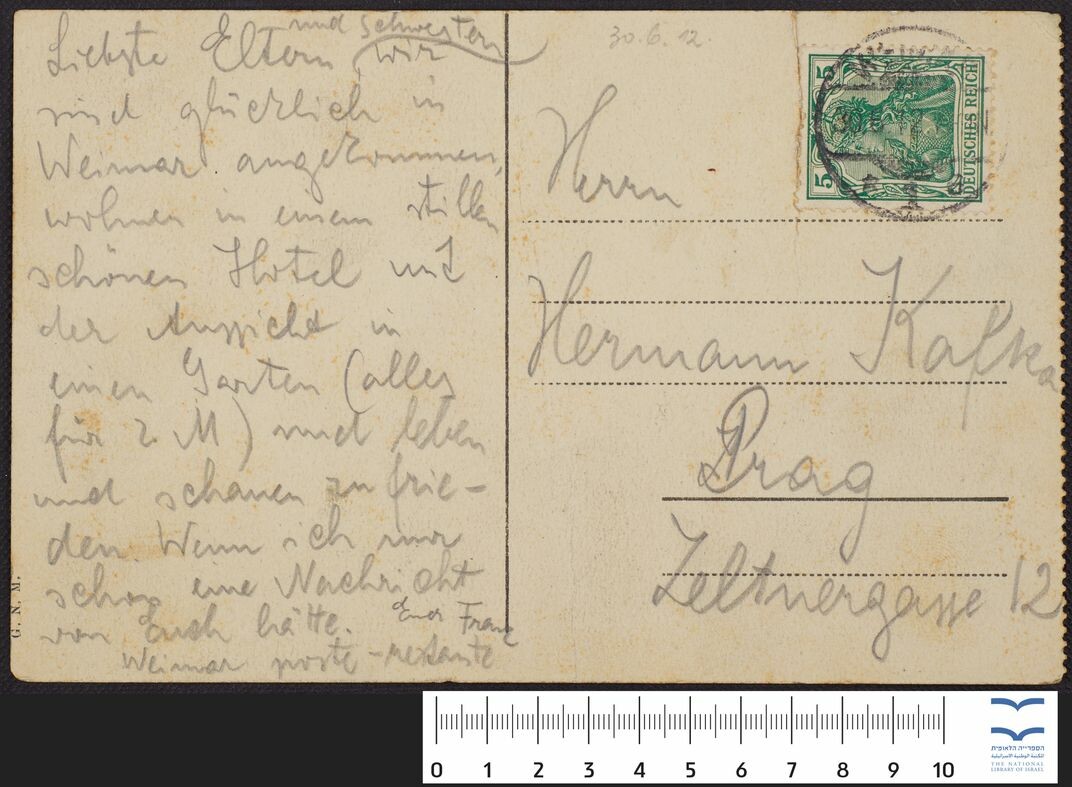 und Schwestern
Liebste Eltern wir
sind glücklich in
Weimar angekommen,
wohnen in einem stillen
schönen Hotel mit
der Aussicht in
einen Garten (alles
für 2 M) und leben
und schauen zufrie-
den. Wenn ich nur
schon eine Nachricht
von Euch hätte.
Euer Franz
Weimar poste-restante
G. N. M.
30.6.12.
DEUTSCHES REICH
5
5
Herrn
Hermann Kafka
Prag
Zeltnergasse 12
0 1 2 3 4 5 6 7 8 9 10
הספרייה הלאומית
THE NATIONAL
LIBRARY OF ISRAEL